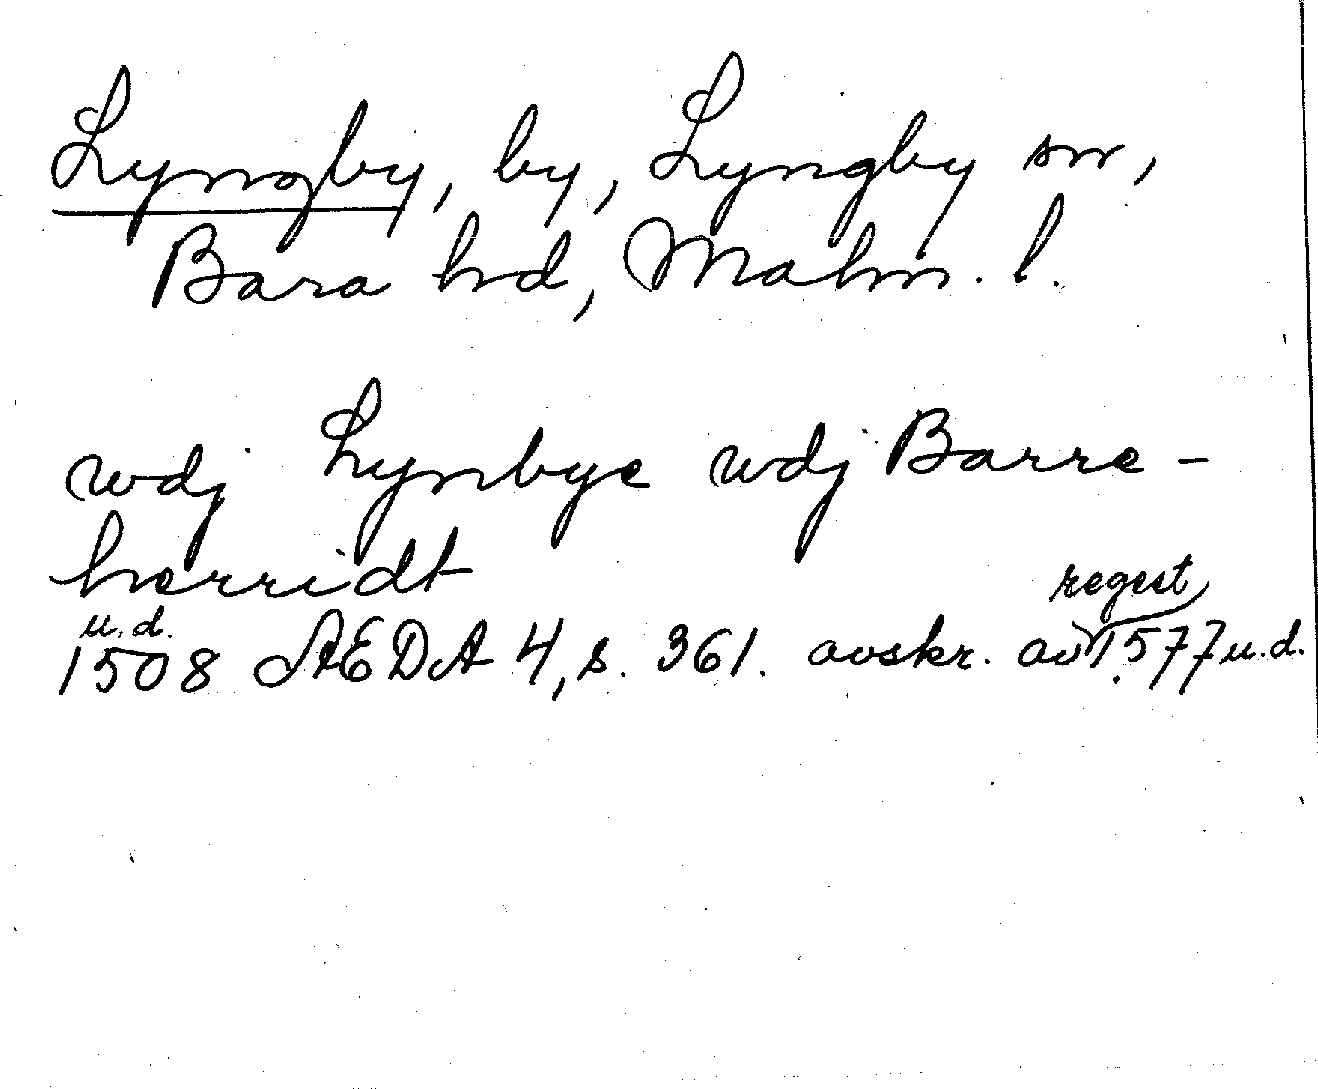 Lyngby, by, Lyngby sn,
Bara hd, Malm. l.
wdj Lynbye wdj Barre-
herridt
u.d.
regest
1508 ÆDA 4, s. 361. avskr. av 1577 u.d.